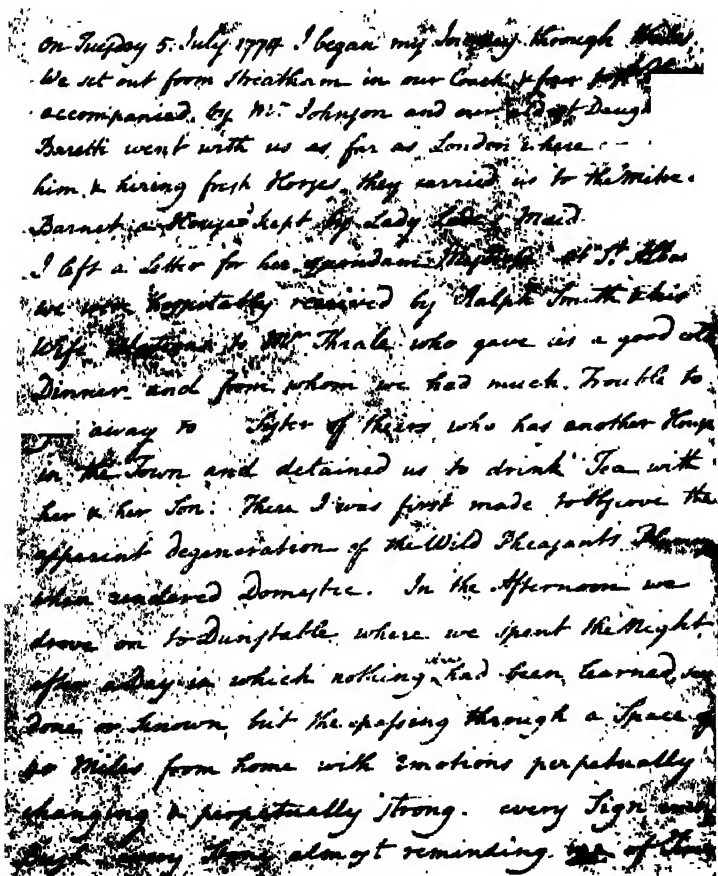 On Tuesday 5: July 1774 I began my Journey through Wales
We set out from Streatham in our Coach & four post
accompanied by Mr. Johnson and our eldest Daugh
Baretti went with us as far as London where
him & hiring fresh Horses they carried us to the Mitre
Barnet a House kept by Lady Maid
I left a Letter for her quondam Mistress at St. Albas
we were hospitably received by Ralph Smith & his
Wife Relations to Mr. Thrale who gave us a good cold
Dinner and from whom we had much Trouble to
away to Sister of theirs who has another House
in the Town and detained us to drink Tea with
her & her Son. There I was first made to observe the
apparent degeneration of the Wild Pheasant's
when rendered Domestic. In the Afternoon we
drove on to Dunstable where we spent the Night,
after a Day in which nothing had been learned
done or known, but the passing through a Space of
40 Miles from home with emotions perpetually
changing & perpetually strong. every Sign every
Bush every Stone almost reminding me of